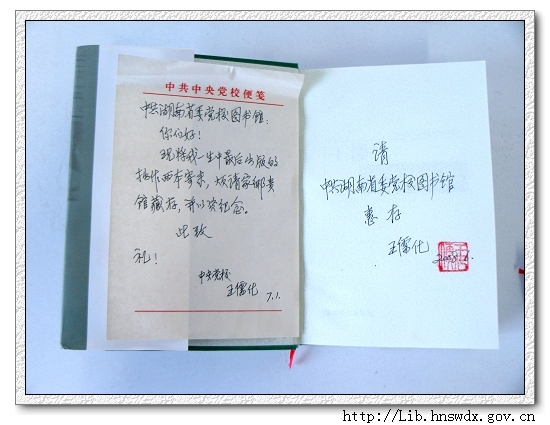 中共中央党校便笺
中共湖南省委党校图书馆：
你们好！
现将我一生中最后出版的
拙作两本寄来，烦请家乡贵
馆藏存，并以资纪念。
此致
礼！
中央党校
王儒化
7.1.
请
中共湖南省委党校图书馆
惠存
王儒化
http://Lib.hnswdx.gov.cn